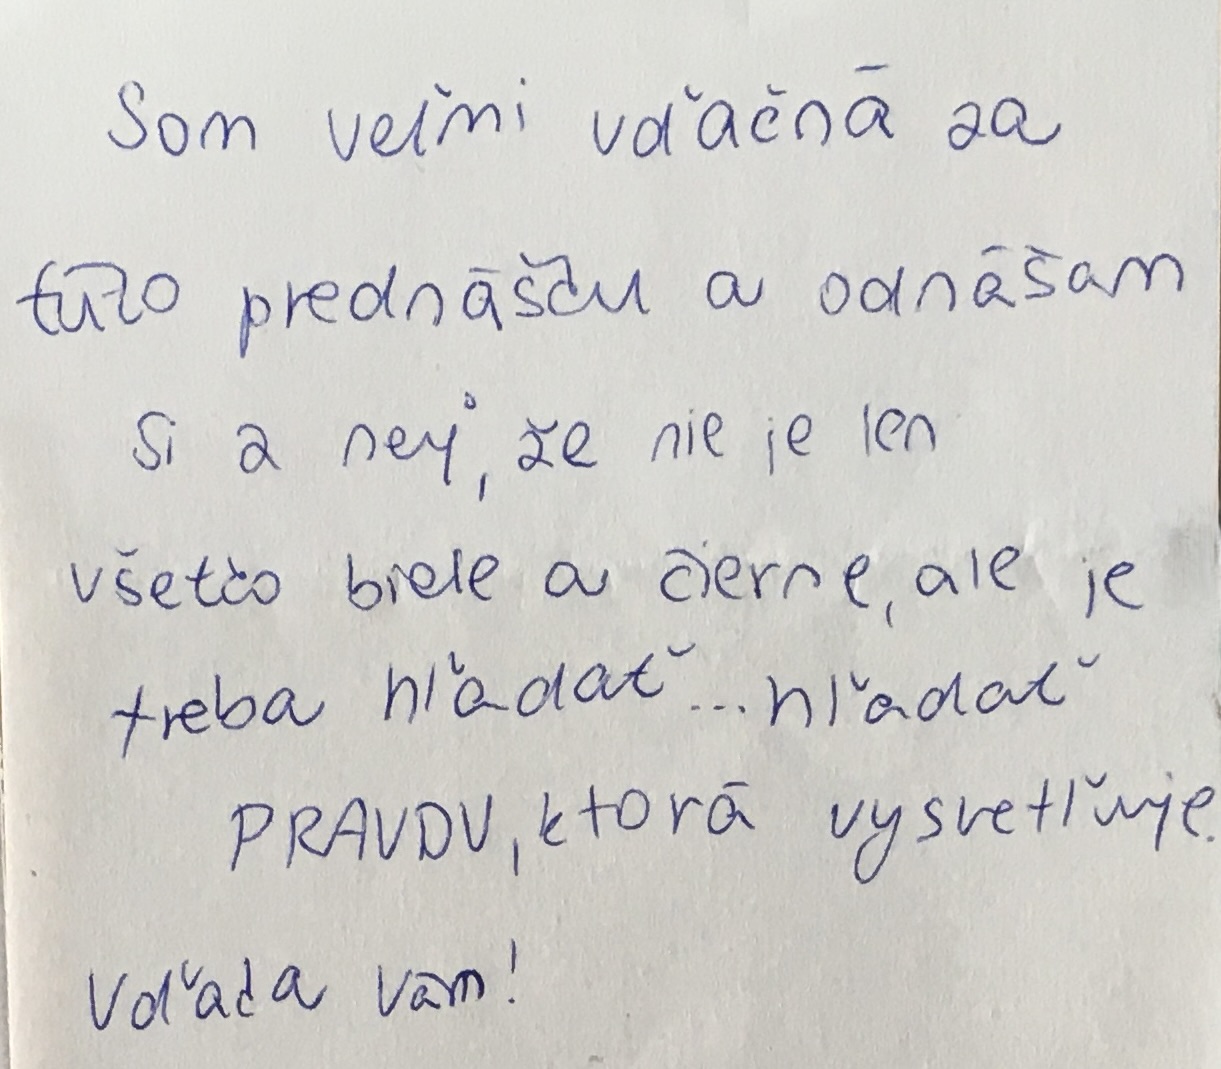 Som veľmi vďačná za
túto prednášku a odnášam
si z nej, že nie je len
všetko biele a čierne, ale je
treba hľadať... hľadať
PRAVDU, ktorá vysvetľuje.
Vďaka vám!